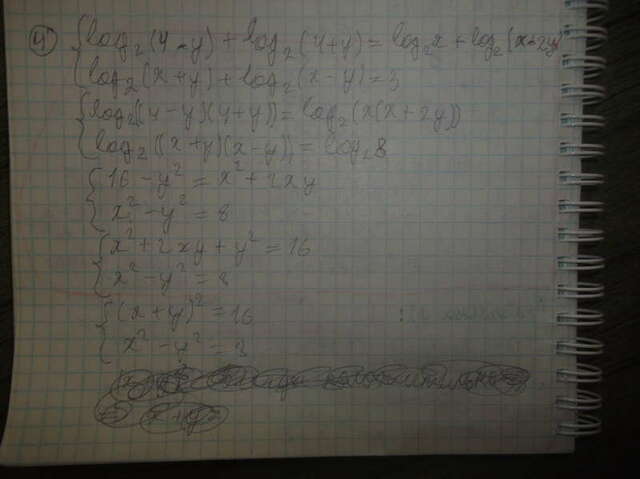 4) { log₂(4-y) + log₂(4+y) = log₂x + log₂(x+2y)
{ log₂(x+y) + log₂(x-y) = 3
{ log₂((4-y)(4+y)) = log₂(x(x+2y))
{ log₂((x+y)(x-y)) = log₂8
{ 16 - y² = x² + 2xy
{ x² - y² = 8
{ x² + 2xy + y² = 16
{ x² - y² = 8
{ (x+y)² = 16
{ x² - y² = 8